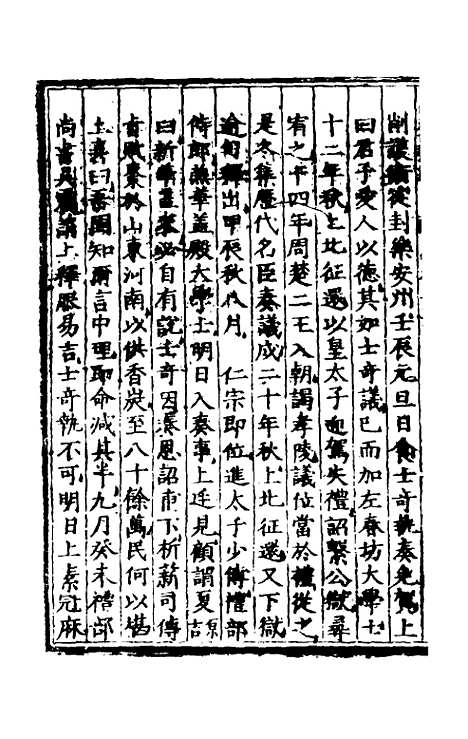 削護衛從封樂安州壬辰元旦日食士奇執奏免賀上
曰君子愛人以德其如士奇議已而加左春坊大學士
十二年秋上北征還以皇太子迎駕失禮詔繫公獄尋
宥之十四年周楚二王入朝謁孝陵議位當於禮從之
是冬集歷代名臣奏議成二十年秋上北征還又下獄
逾旬釋出甲辰秋八月 仁宗即位進太子少傅禮部
侍郎兼華蓋殿大學士明日入奏事上遙見顧謂夏原吉
曰新華蓋來必自有說士奇因奏恩詔甫下析薪司傳
旨賦棗於山東河南以供香炭至八十餘萬民何以堪
上喜曰吾固知爾言中理即命減其半九月癸未禮部
尚書呂震請上釋服易吉士奇執不可明日上素冠麻